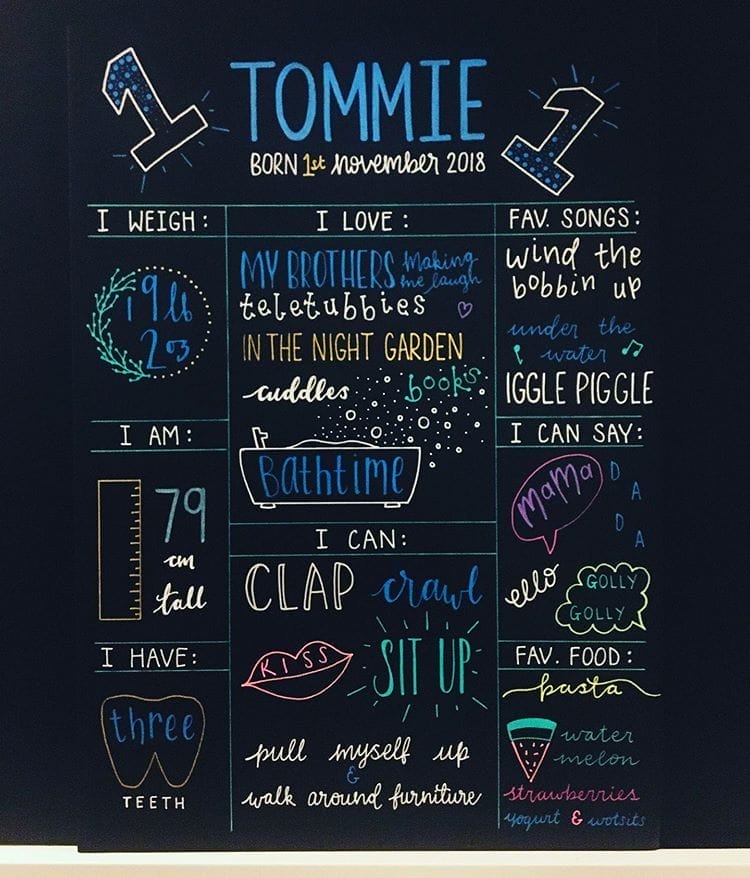 1
TOMMIE
1
BORN 1st november 2018
I WEIGH:
19lb
2oz
I AM:
79
cm
tall
I HAVE:
three
TEETH
I LOVE:
MY BROTHERS making
me laugh
teletubbies
IN THE NIGHT GARDEN
cuddles
books
Bathtime
I CAN:
CLAP crawl
KISS
SIT UP
pull myself up
&
walk around furniture
FAV. SONGS:
wind the
bobbin up
under the
water
IGGLE PIGGLE
I CAN SAY:
MAMA
DADA
ello
GOLLY
GOLLY
FAV. FOOD:
pasta
water
melon
strawberries
yogurt & wotsits